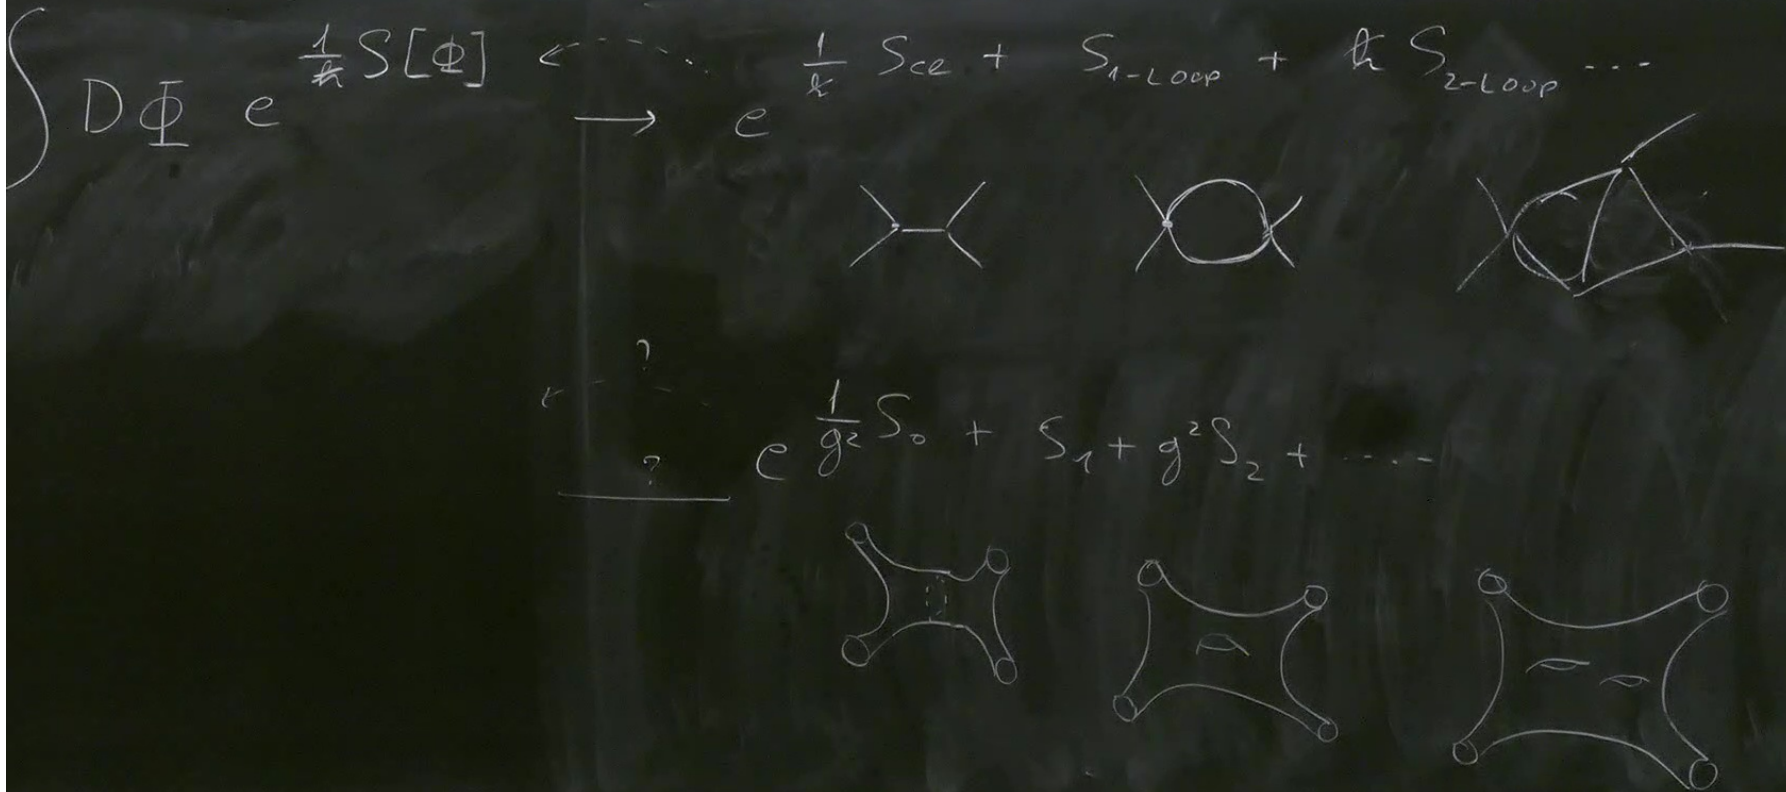 ∫ DΦ e^{1/ℏ S[Φ]} → e^{1/ℏ S_{cl} + S_{1-LOOP} + ℏ S_{2-LOOP} ....}
?
? e^{1/g² S_0 + S_1 + g² S_2 + .....}